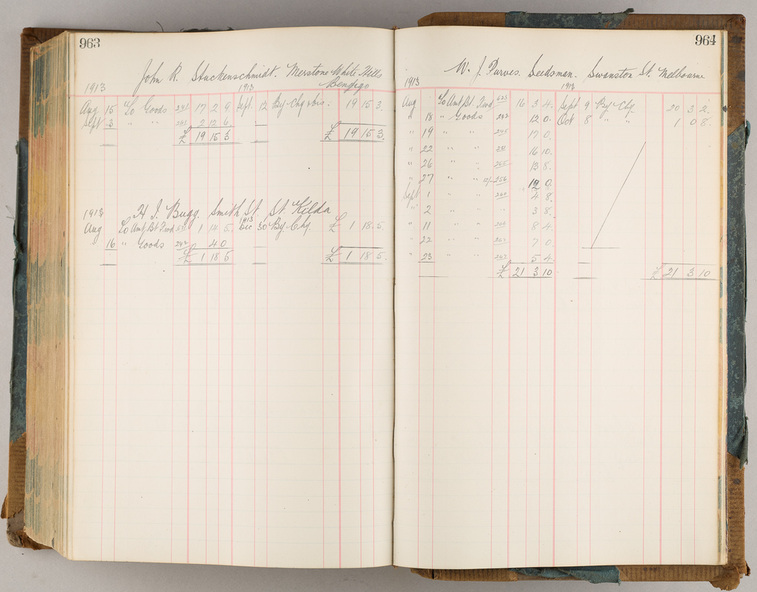 963
John R. Stuckenschmidt. Merstone White Mills
Bendigo
1913 1913
Aug 15 To Goods 17 2 9 Sept 12 By Chq + dis: 19 15 3.
Sept 3 " " 2 12 6
£ 19 15 3 £ 19 15 3.
H J. Bugg. Smith St. St. Kilda
1913 1913
Aug To Amt Bt Fwd 1 14 5 Dec 30 By Chq £ 1 18 5.
16 " Goods 4 0
£ 1 18 5 £ 1 18 5.
964
W. J. Purves. Seedsman. Swanston St. Melbourne
1913 1913
Aug To Amt Bt Fwd 16 3 4. Sept 9 By Chq 20 3 2.
" 18 " Goods 12 0. Oct 8 " " 1 0 8.
" 19 " " 17 0.
" 22 " " 16 10.
" 26 " " 13 8.
" 27 " " 12 0.
Sept 1 " " 4 8.
" 2 " " 3 8.
" 11 " " 8 4
" 22 " " 7 0
" 23 " " 5 4.
£ 21 3 10 £ 21 3 10